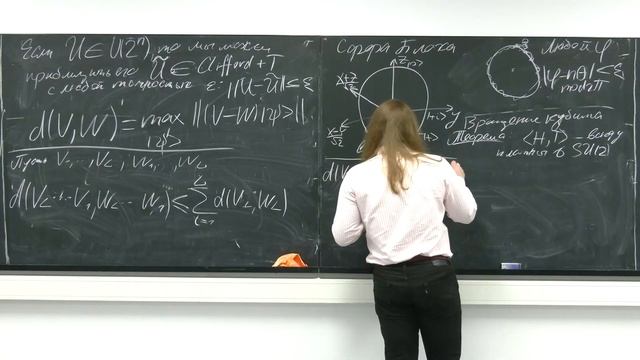 Если U ∈ U(2ⁿ), то мы можем
приблизить его Ũ ∈ Clifford+T
с любой точностью ε: ||U-Ũ|| ≤ ε
d(V,W) = max ||(V-W)|ψ>||
|ψ>
Пусть V₁,...,V_L, W₁,...,W_L
d(V_L...V₁, W_L...W₁) ≤ Σ d(V_i, W_i)
L
i=1
Сфера Блоха
Z |0>
X+Z
√2
y
Любой φ
|φ-nθ| ≤ ε
mod 2π
Вращение кубита
Теорема <H,T> - всюду
плотны в SU(2)
d(V